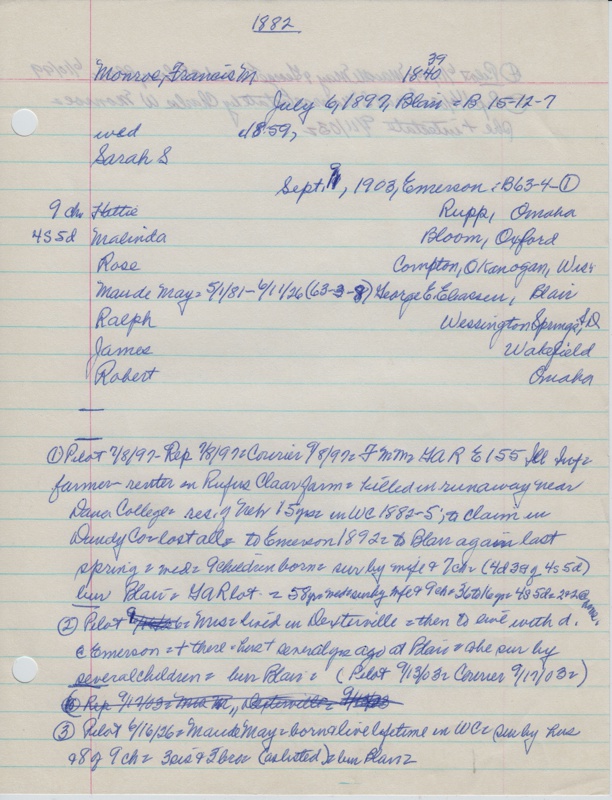 1882
Monroe, Francis M 1840 39
July 6, 1897, Blair = B 15-12-7
wed 1859,
Sarah S
Sept. 9, 1903, Emerson = B63-4-①
9 ch Hattie Rupp, Omaha
4S 5d Malinda Bloom, Oxford
Rose Compton, Okanogan, Wash
Maude May = 5/1/81-6/11/26 (63-3-8) George E. Eliassen, Blair
Ralph Wessington Springs, S.D.
James Wakefield
Robert Omaha
① Pilot 7/8/97 - Rep 7/8/97 = Courier 7/8/97 = F M M = GAR E 155 Ill Inf =
farmer - renter on Rufus Claar farm = killed in runaway near
Dana College = res. of Nebr 15 yrs = in WC 1882-5; to claim in
Dundy Co = lost all = to Emerson 1892 = to Blair again last
spring = wed = 9 children born = sur by wife & 7 ch = (4d 3 of 4s 5d)
bur Blair = GAR lot = 58 yrs = wed = sur by wife & 9 ch = 3 to 16 yrs = 4S 5d = 2
② Pilot = Mrs = lived in Dexterville = then to live with d.
c Emerson = + there = hus + several yrs ago at Blair = she sur by
several children = bur Blair = (Pilot 9/13/03 = Courier 9/17/03 =)
③ Pilot 6/16/26 = Maude May = born & live lifetime in WC = sur by hus
& 8 of 9 ch = 3 sis & 3 bro = (as listed) = bur Blair =